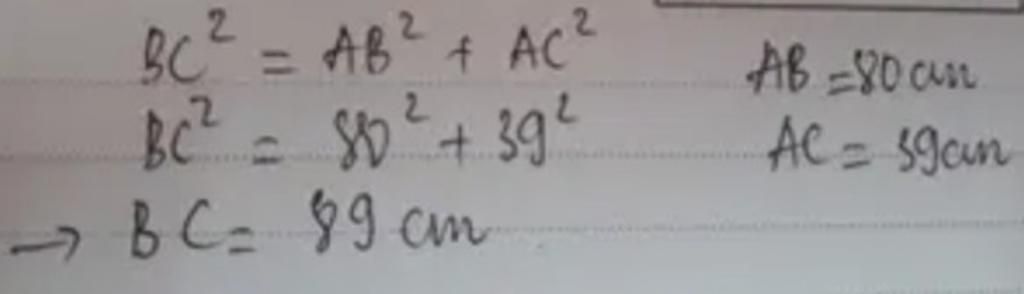 BC² = AB² + AC²
AB = 80 cm
BC² = 80² + 39²
AC = 39 cm
→ BC = 89 cm